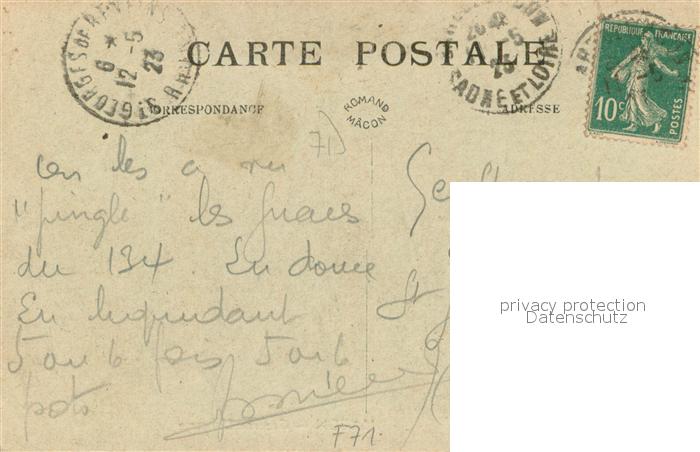 CARTE POSTALE
CORRESPONDANCE
ADRESSE
ROMAND
MÂCON
ST GEORGES DE RENEINS
6 *
12 -5
23
SAONE ET LOIRE
REPUBLIQUE FRANÇAISE
10c
POSTES
71)
on les a vu
les
du 134. En douce
En liquidant
5 ou 6 fois 5 ou 6
pots
St
F71.
privacy protection
Datenschutz